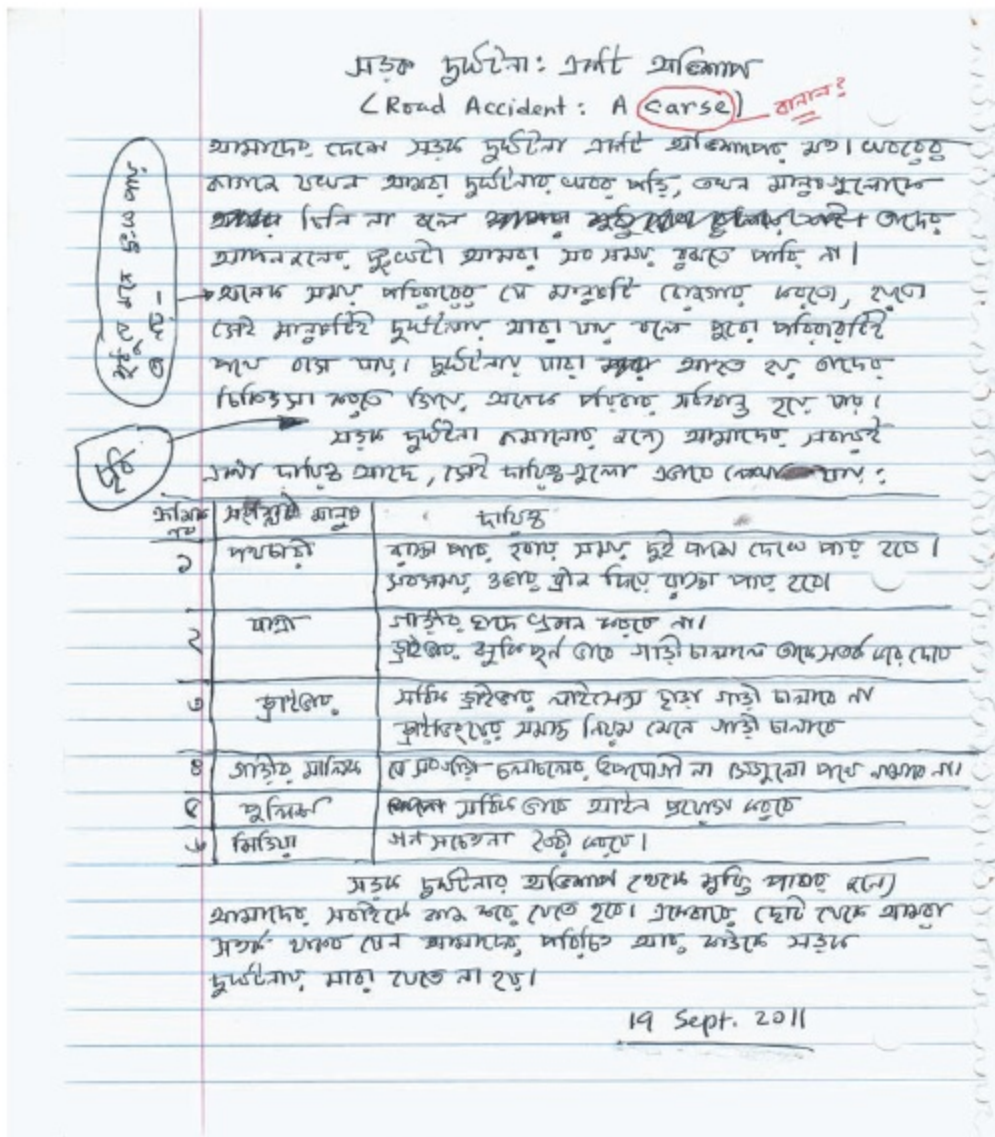 সড়ক দুর্ঘটনা: একটি অভিশাপ
(Road Accident: A Carse)
বানান?
আমাদের দেশে সড়ক দুর্ঘটনা একটি অভিশাপের মত। খবরের
কাগজে যখন আমরা দুর্ঘটনার খবর পড়ি, তখন মানুষগুলোকে
চিনি না বলে তাদের
আপনজনের দুঃখটা আমরা সব সময় বুঝতে পারি না।
অনেক সময় পরিবারের যে মানুষটি রোজগার করতো, হয়তো
সেই মানুষটিই দুর্ঘটনায় মারা যায় বলে পুরো পরিবারটিই
পথে বসে যায়। দুর্ঘটনায় যারা আহত হয় তাদের
চিকিৎসা করতে গিয়ে অনেক পরিবার সর্বস্বান্ত হয়ে যায়।
সড়ক দুর্ঘটনা কমানোর জন্যে আমাদের সবারই
দায়িত্ব আছে, সেই দায়িত্বগুলো এভাবে লেখা যায়:
ক্রমিক নং সংশ্লিষ্ট মানুষ দায়িত্ব
১ পথচারী রাস্তা পার হবার সময় দুই পাশে দেখে পার হবে।
সবসময় ওভার ব্রীজ দিয়ে রাস্তা পার হবে।
২ যাত্রী গাড়ীর ছাদে ভ্রমন করবে না।
ড্রাইভার ঝুকিপূর্ন ভাবে গাড়ী চালালে তাকে সতর্ক করে দেবে
৩ ড্রাইভার সঠিক ড্রাইভার লাইসেন্স ছাড়া গাড়ী চালাবে না
ড্রাইভিংয়ের সমস্ত নিয়ম মেনে গাড়ী চালাবে
৪ গাড়ীর মালিক যে সব গাড়ী চলাচলের উপযোগী না সেগুলো পথে নামাবে না।
৫ পুলিশ সঠিক ভাবে আইন প্রয়োগ করবে
৬ মিডিয়া গন সচেতনা তৈরী করবে।
সড়ক দুর্ঘটনার অভিশাপ থেকে মুক্তি পাবার জন্যে
আমাদের সবাইকে কাজ করে যেতে হবে। একেবারে ছোট থেকে আমরা
সতর্ক থাকব যেন আমাদের পরিচিত আর কাউকে সড়ক
দুর্ঘটনায় মারা যেতে না হয়।
19 Sept. 2011